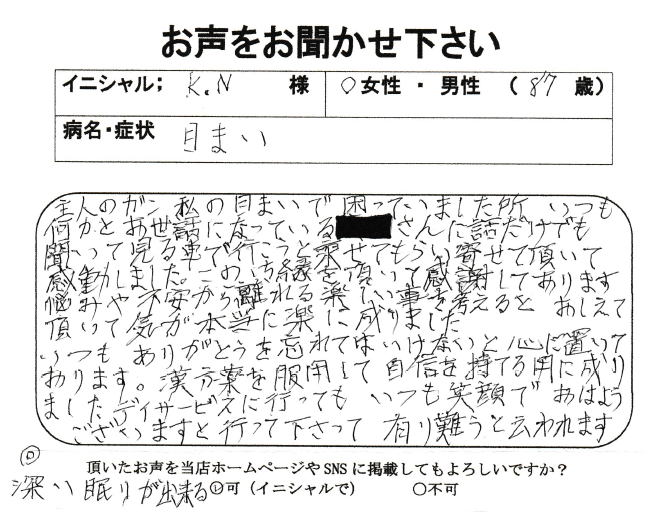 お声をお聞かせ下さい
イニシャル; K.N 様 ○女性・男性 (87歳)
病名・症状 目まい
主人のガン 私の目まいで困っていました所 いつも
何かとお世話になっている さんに話だけでも
聞いって見る車で行こうと乗せてもらい寄せて頂いて
感動しました。このご縁を頂いて感謝してあります
悩みや不安から離れる楽しい事を考えると おしえて
頂いて気が本当に楽に成りました
いつも ありがとうを忘れてはいけないと心に置いて
おります。漢方薬を服用して自信を持てる用に成り
ましたデイサービスに行っても いつも笑顔で おはよう
ございますと行って下さって 有り難うと云われます
◎
頂いたお声を当店ホームページやSNSに掲載してもよろしいですか？
深い眠りが出来る ○可（イニシャルで） ○不可